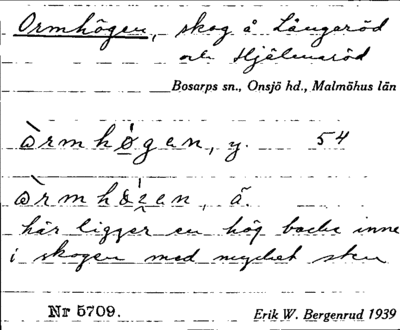 Ormhögen, skog å Långaröd
och Hjälmaröd
Bosarps sn., Onsjö hd., Malmöhus län
òrmhø̀gen, y. 54
ä.
här ligger en hög backe inne
i skogen med mycket sten
Nr 5709. Erik W. Bergenrud 1939